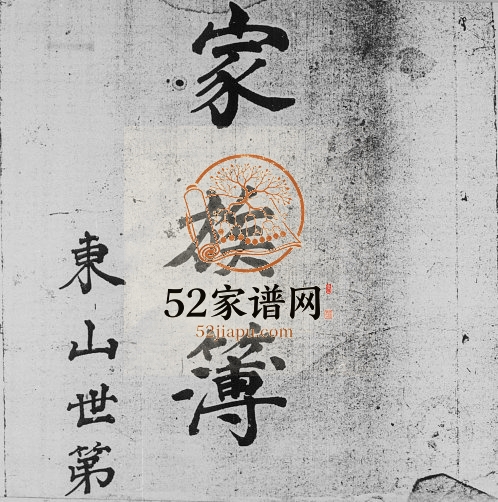 家族簿
東山世第
52家谱网
52jiapu.com